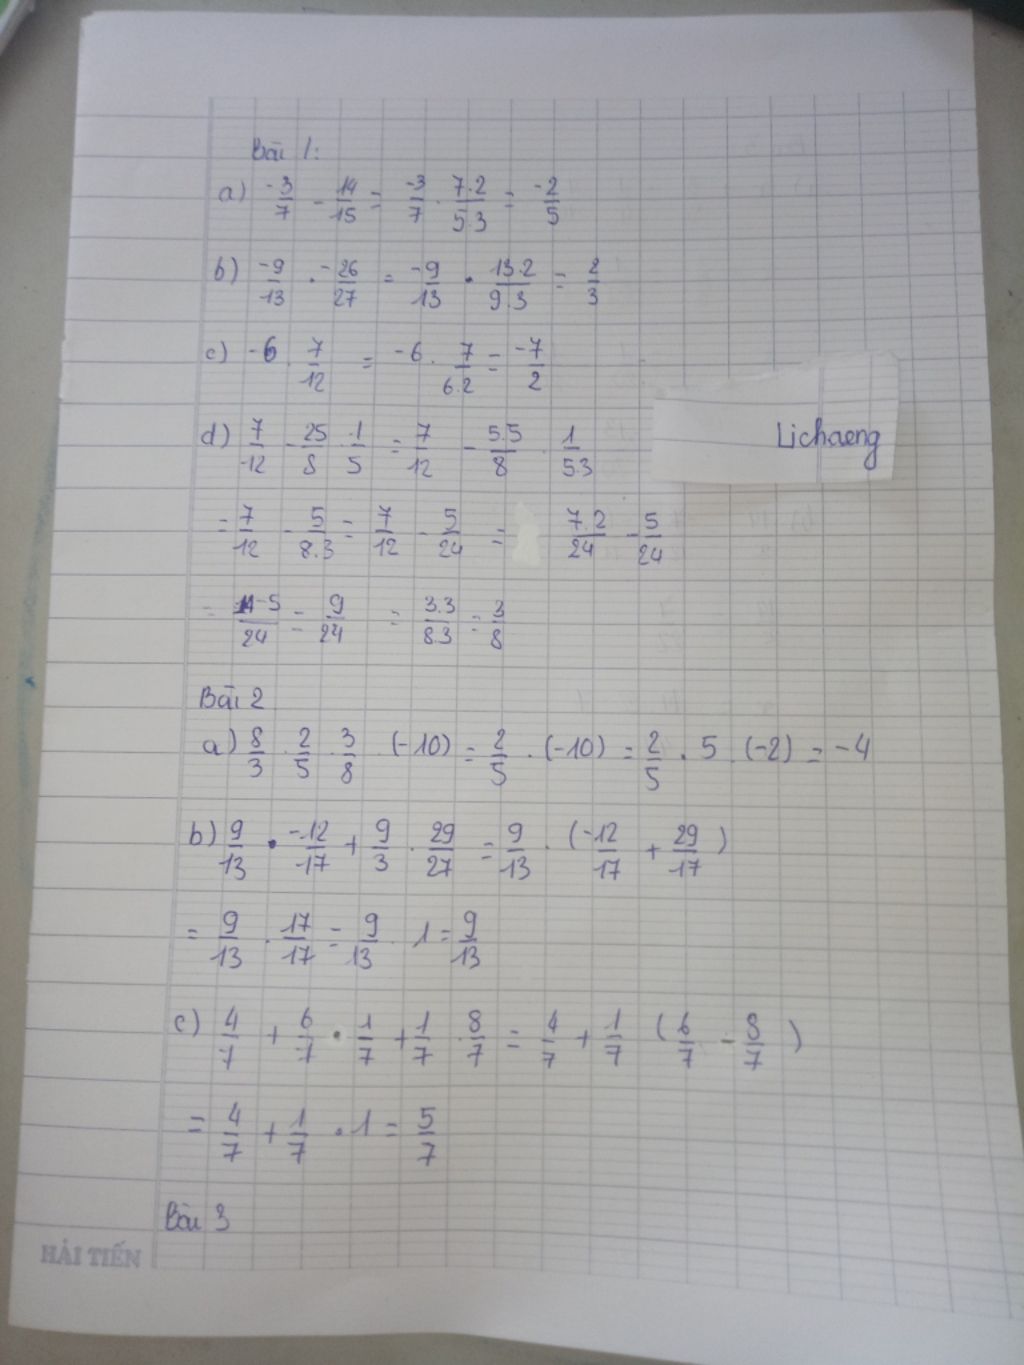 Bài 1:
a) -3/7 - 14/15 = -3/7 . 7.2/5.3 = -2/5
b) -9/13 . -26/27 = -9/13 . 13.2/9.3 = 2/3
c) -6 . 7/12 = -6 . 7/6.2 = -7/2
d) 7/12 - 25/8 . 1/5 = 7/12 - 5.5/8 . 1/5.3
Lichaeng
= 7/12 - 5/8.3 = 7/12 - 5/24 = 7.2/24 - 5/24
= 14-5/24 = 9/24 = 3.3/8.3 = 3/8
Bài 2
a) 8/3 . 2/5 . 3/8 . (-10) = 2/5 . (-10) = 2/5 . 5 . (-2) = -4
b) 9/13 . -12/17 + 9/3 . 29/27 = 9/13 . (-12/17 + 29/17)
= 9/13 . 17/17 = 9/13 . 1 = 9/13
c) 4/7 + 6/7 . 1/7 + 1/7 . 8/7 = 4/7 + 1/7 (6/7 - 8/7)
= 4/7 + 1/7 . 1 = 5/7
Bài 3
HẢI TIẾN